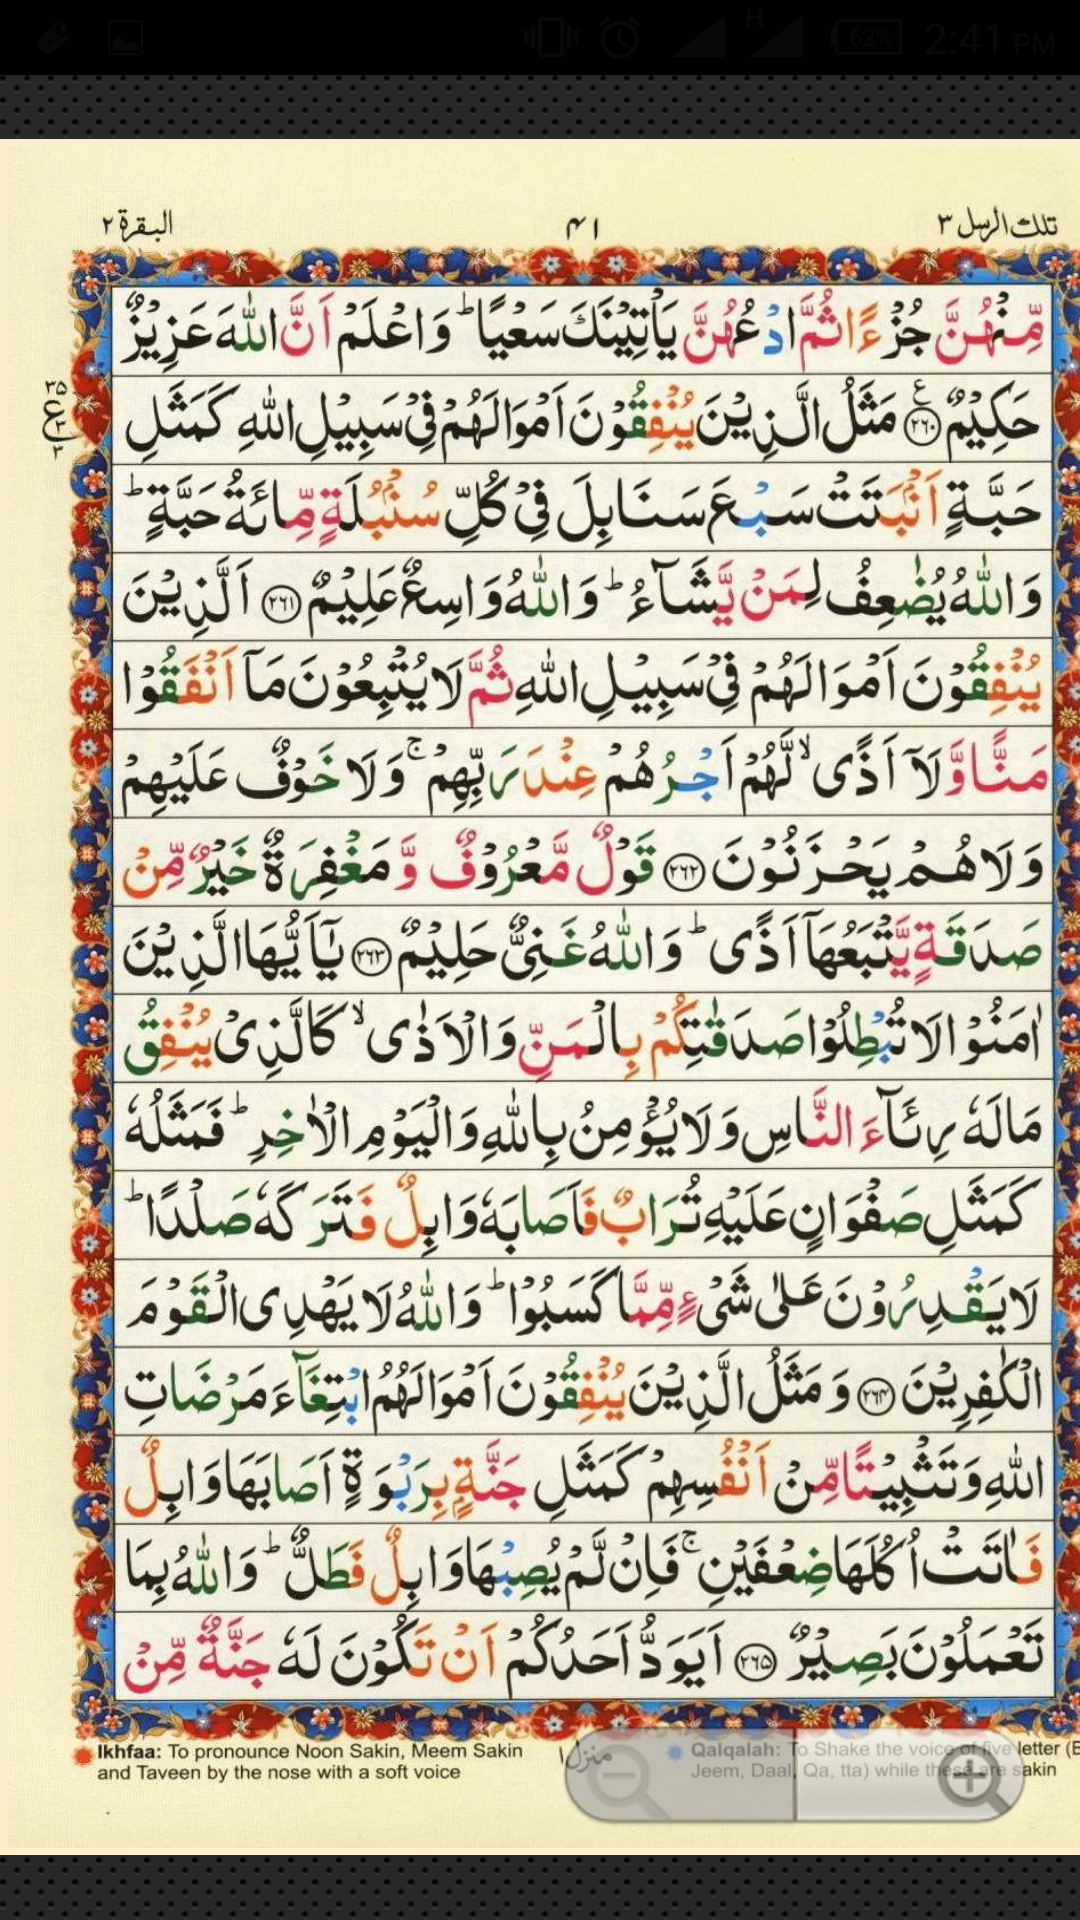 62% 2:41 PM
H
تلك الرسل ٣
٤١
البقرة ٢
مِّنْهُنَّ جُزْءًا ثُمَّ ادْعُهُنَّ يَاْتِيْنَكَ سَعْيًا ؕ وَاعْلَمْ اَنَّ اللّٰهَ عَزِيْزٌ
حَكِيْمٌ ﴿۲۶۰﴾ مَثَلُ الَّذِيْنَ يُنْفِقُوْنَ اَمْوَالَهُمْ فِيْ سَبِيْلِ اللّٰهِ كَمَثَلِ
حَبَّةٍ اَنْۢبَتَتْ سَبْعَ سَنَابِلَ فِيْ كُلِّ سُنْۢبُلَةٍ مِّائَةُ حَبَّةٍ ؕ
وَاللّٰهُ يُضٰعِفُ لِمَنْ يَّشَآءُ ؕ وَاللّٰهُ وَاسِعٌ عَلِيْمٌ ﴿۲۶۱﴾ اَلَّذِيْنَ
يُنْفِقُوْنَ اَمْوَالَهُمْ فِيْ سَبِيْلِ اللّٰهِ ثُمَّ لَا يُتْبِعُوْنَ مَآ اَنْفَقُوْا
مَنًّا وَّلَآ اَذًى ۙ لَّهُمْ اَجْرُهُمْ عِنْدَ رَبِّهِمْ ۚ وَلَا خَوْفٌ عَلَيْهِمْ
وَلَا هُمْ يَحْزَنُوْنَ ﴿۲۶۲﴾ قَوْلٌ مَّعْرُوْفٌ وَّمَغْفِرَةٌ خَيْرٌ مِّنْ
صَدَقَةٍ يَّتْبَعُهَآ اَذًى ؕ وَاللّٰهُ غَنِيٌّ حَلِيْمٌ ﴿۲۶۳﴾ يٰٓاَيُّهَا الَّذِيْنَ
اٰمَنُوْا لَا تُبْطِلُوْا صَدَقٰتِكُمْ بِالْمَنِّ وَالْاَذٰى ۙ كَالَّذِيْ يُنْفِقُ
مَالَهٗ رِئَآءَ النَّاسِ وَلَا يُؤْمِنُ بِاللّٰهِ وَالْيَوْمِ الْاٰخِرِ ؕ فَمَثَلُهٗ
كَمَثَلِ صَفْوَانٍ عَلَيْهِ تُرَابٌ فَاَصَابَهٗ وَابِلٌ فَتَرَكَهٗ صَلْدًا ؕ
لَا يَقْدِرُوْنَ عَلٰى شَيْءٍ مِّمَّا كَسَبُوْا ؕ وَاللّٰهُ لَا يَهْدِى الْقَوْمَ
الْكٰفِرِيْنَ ﴿۲۶۴﴾ وَمَثَلُ الَّذِيْنَ يُنْفِقُوْنَ اَمْوَالَهُمُ ابْتِغَآءَ مَرْضَاتِ
اللّٰهِ وَتَثْبِيْتًا مِّنْ اَنْفُسِهِمْ كَمَثَلِ جَنَّةٍۭ بِرَبْوَةٍ اَصَابَهَا وَابِلٌ
فَاٰتَتْ اُكُلَهَا ضِعْفَيْنِ ۚ فَاِنْ لَّمْ يُصِبْهَا وَابِلٌ فَطَلٌّ ؕ وَاللّٰهُ بِمَا
تَعْمَلُوْنَ بَصِيْرٌ ﴿۲۶۵﴾ اَيَوَدُّ اَحَدُكُمْ اَنْ تَكُوْنَ لَهٗ جَنَّةٌ مِّنْ
Ikhfaa: To pronounce Noon Sakin, Meem Sakin
and Taveen by the nose with a soft voice
منزل ١
Qalqalah: To Shake the voice of five letter (B
Jeem, Daal, Qa, tta) while these are sakin